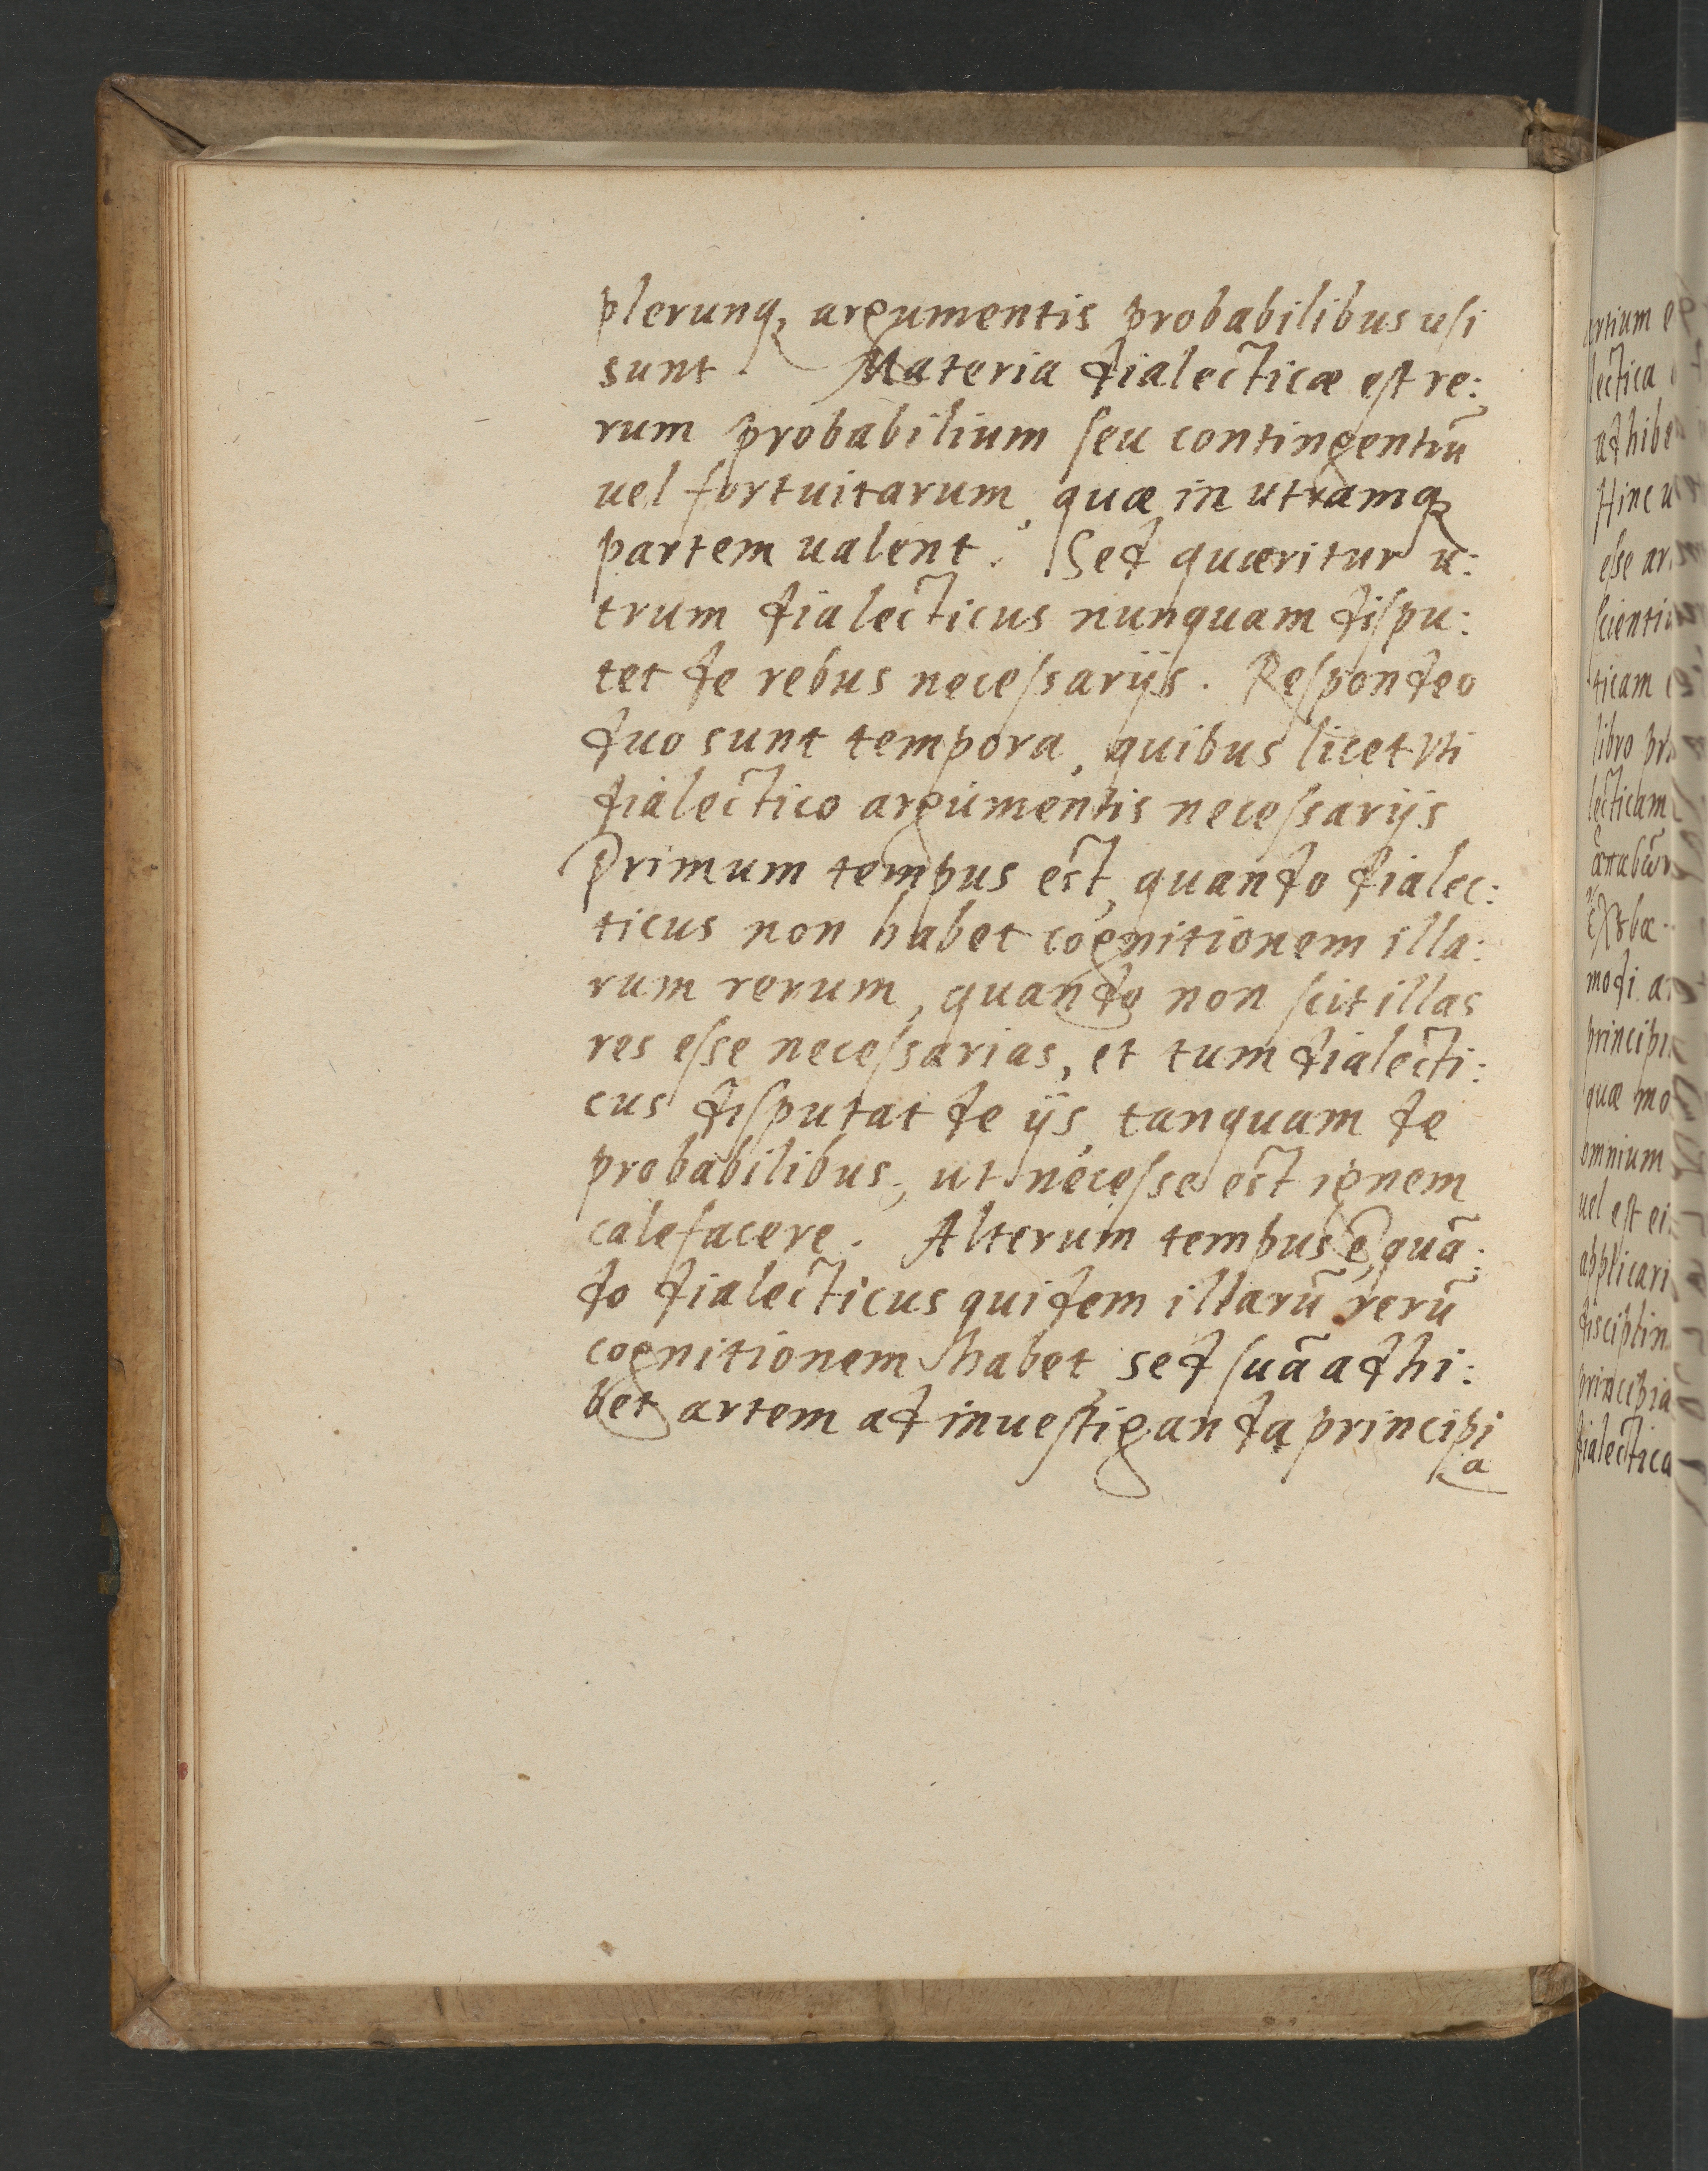 plerunq, argumentis probabilibus usi
sunt. Materia dialecticæ est re:
rum probabilium seu contingentiū
uel fortuitarum, quæ in utramq
partem ualent. Sed quæritur u:
trum dialecticus nunquam dispu:
tet de rebus necessarijs. Respondeo
duo sunt tempora, quibus licet Vti
dialectico argumentis necessarijs
Primum tempus est, quando dialec:
ticus non habet cognitionem illa:
rum rerum, quando non scit illas
res esse necessarias, et tum dialecti:
cus disputat de ijs, tanquam de
probabilibus, ut necesse est ignem
calefacere. Alterum tempus ē, quā:
do dialecticus quidem illarū rerū
cognitionem habet, sed suā adhi:
bet artem ad inuestiganda principi
a
ertium
lectica
adhibe
Hinc u
esse ar
scienti
ticam
libro pr
lecticam
modi a
principi
quæ mo
omnium
uel est ei
applicari
disciplin
principia
dialectica